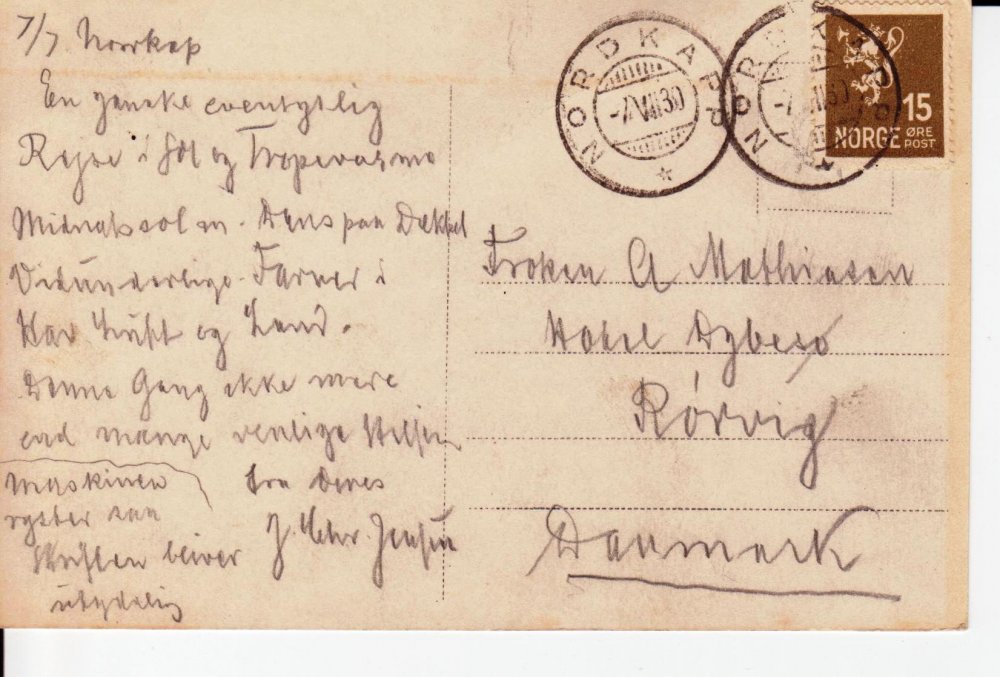 7/7 Norrkap
En ganske eventyrlig
Rejse i Sol og Tropevarme
Midnatssol m. Dans paa Dækket
Vidunderlige Farver i
Hav Luft og Land.
Denne Gang ikke mere
end mange venlige Hilsen
fra Deres
J. Chr. Jensen
Maskinen
ryster saa
Skriften bliver
utydelig
NORDKAPP
-7.VII.30
NORDKAPP
-7.VII.30
15
NORGE ØRE
POST
Frøken A Mathiasen
Hotel Dybesø
Rörvig
Danmark